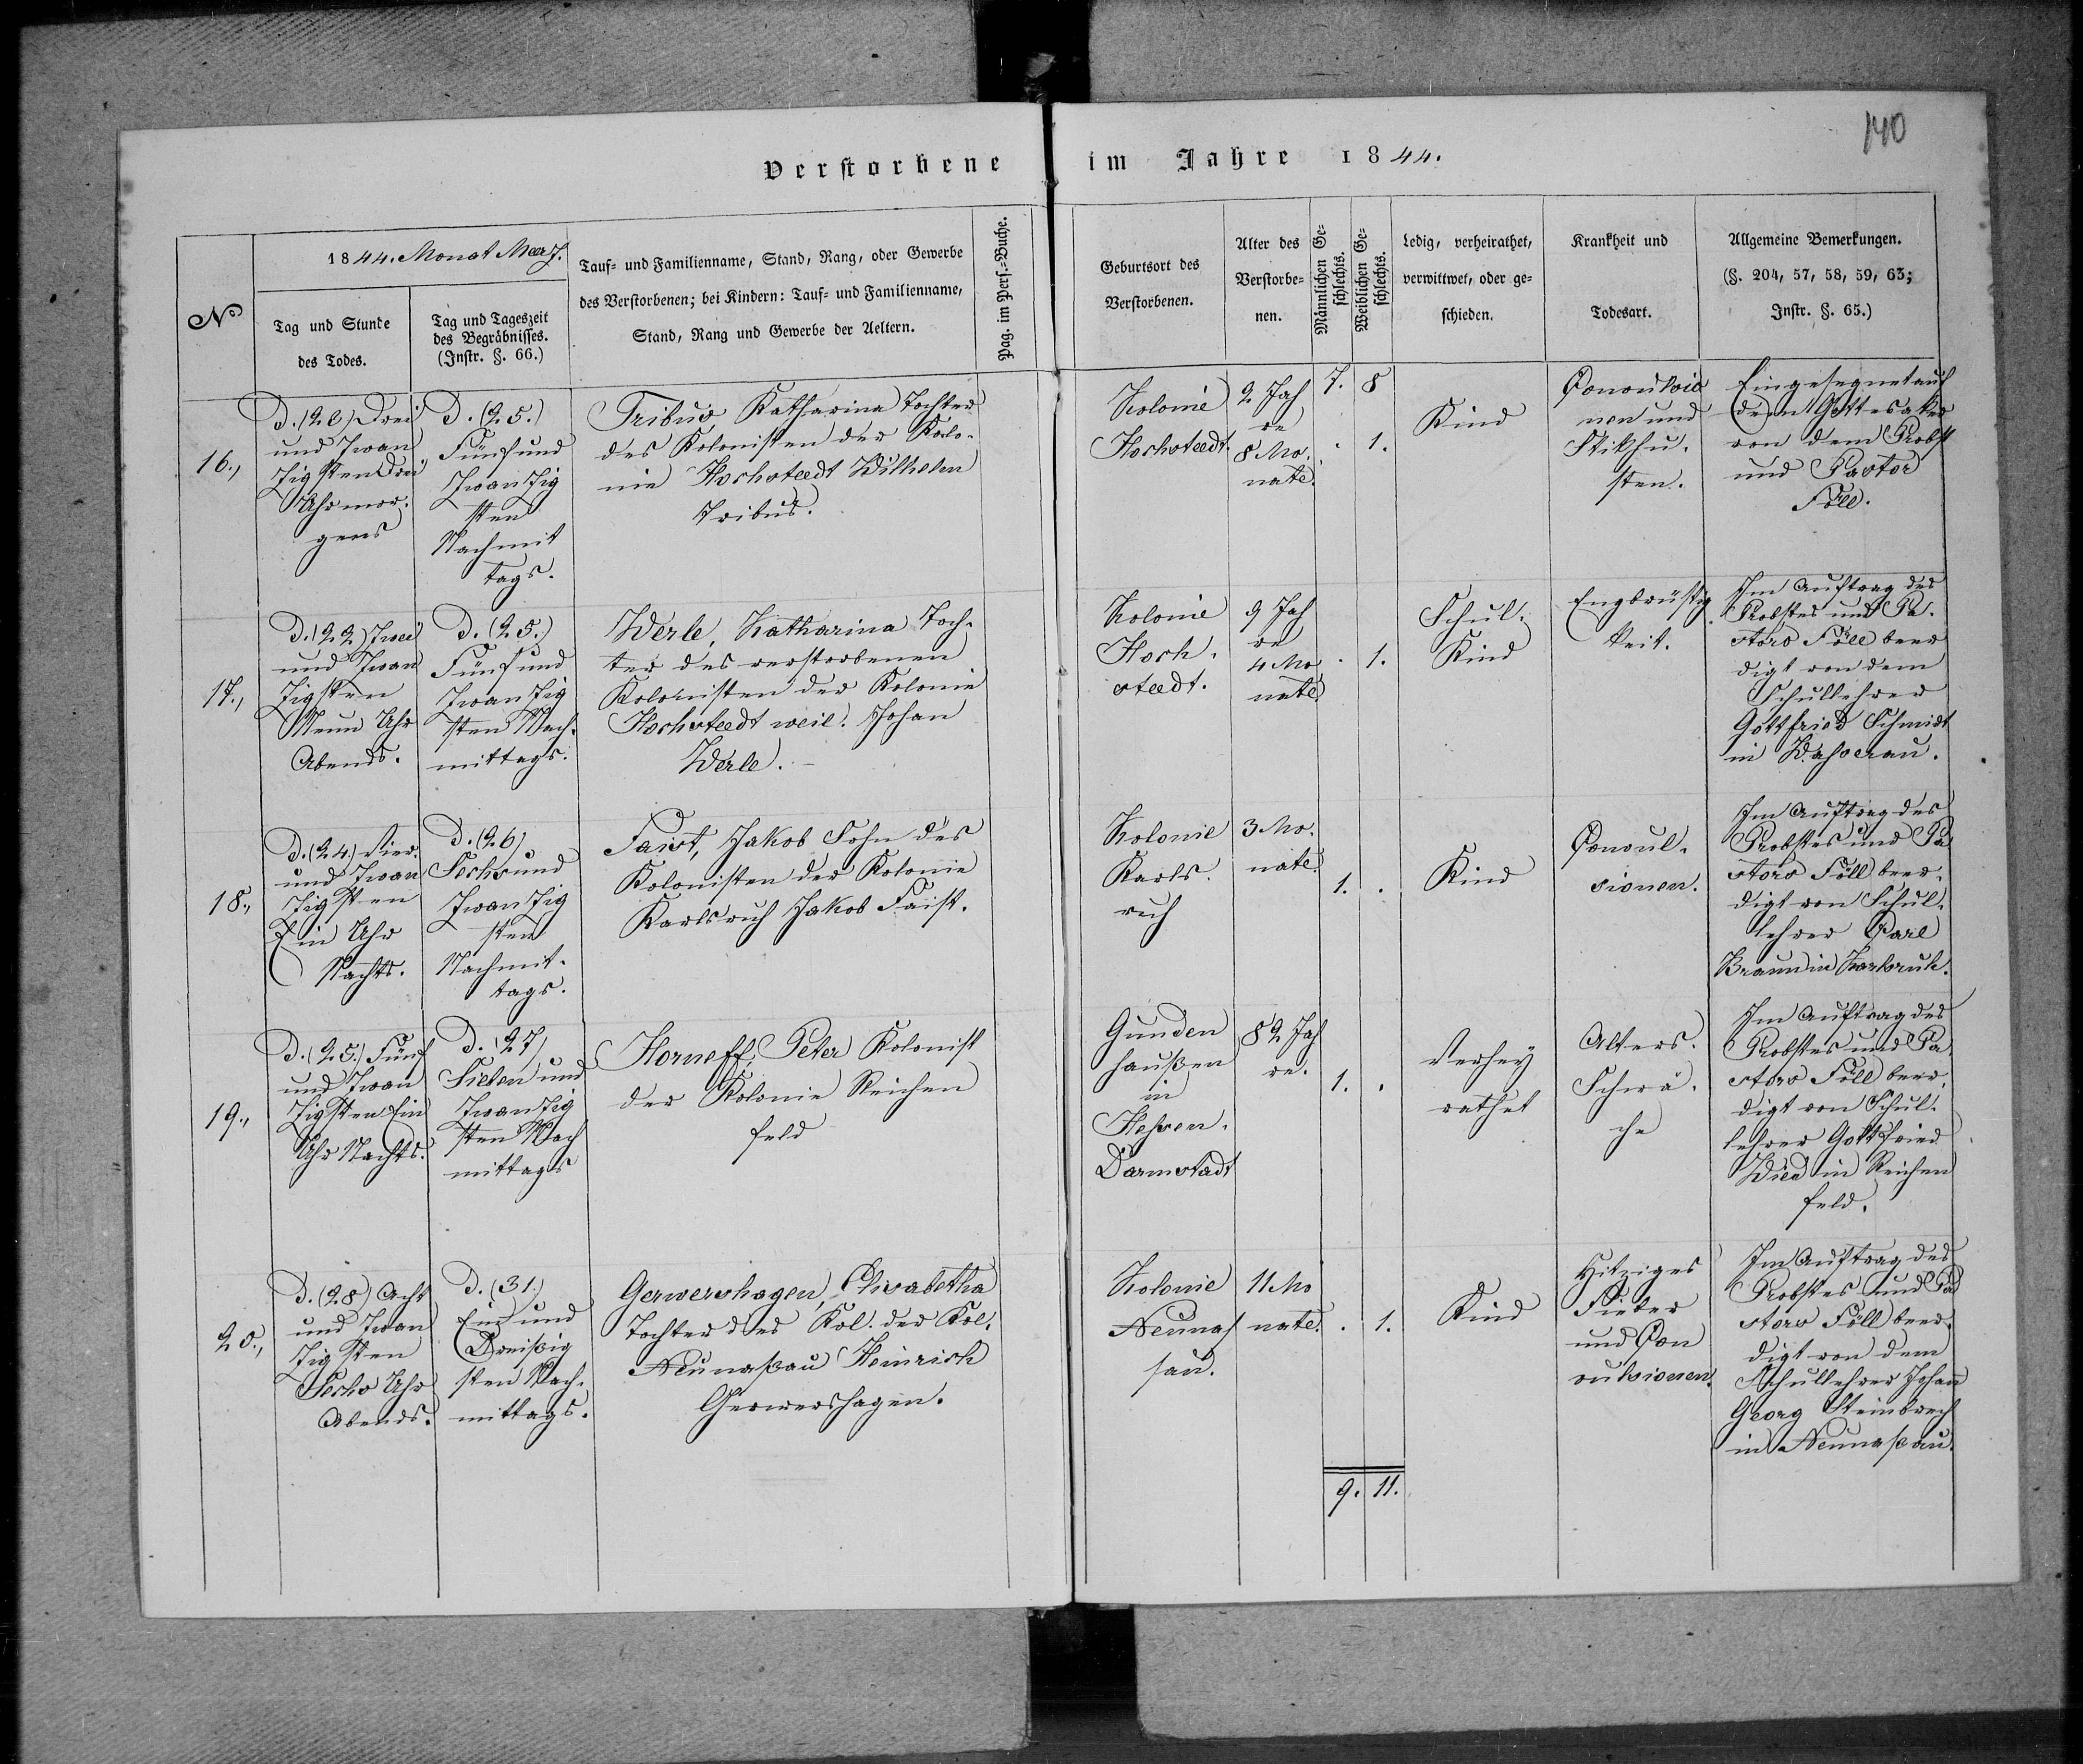 140
Verstorbene im Jahre 1844.
N°
1844. Monat Maerz.
Tag und Stunde
des Todes.
Tag und Tageszeit
des Begräbnisses.
(Instr. §. 66.)
Tauf- und Familienname, Stand, Rang, oder Gewerbe
des Verstorbenen; bei Kindern: Tauf- und Familienname,
Stand, Rang und Gewerbe der Aeltern.
Pag. im Pers.-Buche.
Geburtsort des
Verstorbenen.
Alter des
Verstorbe-
nen.
Männlichen Ge-
schlechts.
Weiblichen Ge-
schlechts.
Ledig, verheirathet,
verwittwet, oder ge-
schieden.
Krankheit und
Todesart.
Allgemeine Bemerkungen.
(§. 204, 57, 58, 59, 63;
Instr. §. 65.)
7. 8
16.,
Drei
und Zwan
zigsten Drei
Uhr mor-
gens
D. (25.)
Fünf und
Zwanzig
sten
Nachmit
tags.
Tribus, Katharina Tochter
des Kolonisten der Kolo-
nie Hochstedt Wilhelm
Tribus.
Kolonie
Hochstedt.
2 Jah
re
8 Mo-
nate.
. 1.
Kind
Convulsio
nen und
Stikhu-
sten.
Eingesegnet auf
dem Gottesaker
von dem Probst
und Pastor
Föll.
17.,
D. (22) Zwei
und Zwan
zigsten
Neun Uhr
Abends.
D. (25.)
Fünf und
Zwanzig
sten Nach-
mittags.
Werle, Katharina Toch-
ter des verstorbenen
Kolonisten der Kolonie
Hochstedt weil. Johan
Werle.
Kolonie
Hoch-
stedt.
9 Jah
re
4 Mo
nate
. 1.
Schul-
Kind
Engbrüstig
keit.
Im Auftrag des
Probstes und Pa-
stors Föll beer
digt von dem
Schullehrer
Gottfried Schmidt
in Waßerau.
18.,
D. (24.) Vier-
und Zwan
zigsten
Ein Uhr
Nachts.
D. (26)
Sechs und
Zwanzig
sten
Nachmit-
tags.
Faist, Jakob Sohn des
Kolonisten der Kolonie
Karlsruh Jakob Faist.
Kolonie
Karls-
ruh
3 Mo-
nate.
1. .
Kind
Convul-
sionen.
Im Auftrag des
Probstes und Pa
stors Föll beer-
digt von Schul-
lehrer Carl
Braun in Karlsruh.
19.,
D. (25.) Fünf
und Zwan
zigsten Ein
Uhr Nachts.
D. (27)
Sieben und
Zwanzig
sten Nach
mittags
Horneff, Peter Kolonist
der Kolonie Reichen
feld
Gunden
haußen
in
Heßen-
Darmstadt
82 Jah
re.
1. .
Verhey
rathet
Alters-
Schwä-
che
Im Auftrag des
Probstes und Pa
stors Föll beer-
digt von Schul-
lehrer Gottfried
Wied in Reichen
feld.
20.,
D. (28) Acht
und Zwan
zigsten
Sechs Uhr
Abends.
D. (31.)
Ein und
Dreißig
sten Nach-
mittags.
Gerwershagen, Elisabetha
Tochter des Kol. der Kol.
Neunaßau Heinrich
Gerwershagen.
Kolonie
Neunas
sau.
11 Mo
nate.
. 1.
Kind
Hitziges
Fieber
und Con
vulsionen.
Im Auftrag des
Probstes und Pa
stors Föll beer-
digt von dem
Schullehrer Johann
Georg Steinbrech
in Neunaßau.
9. 11.